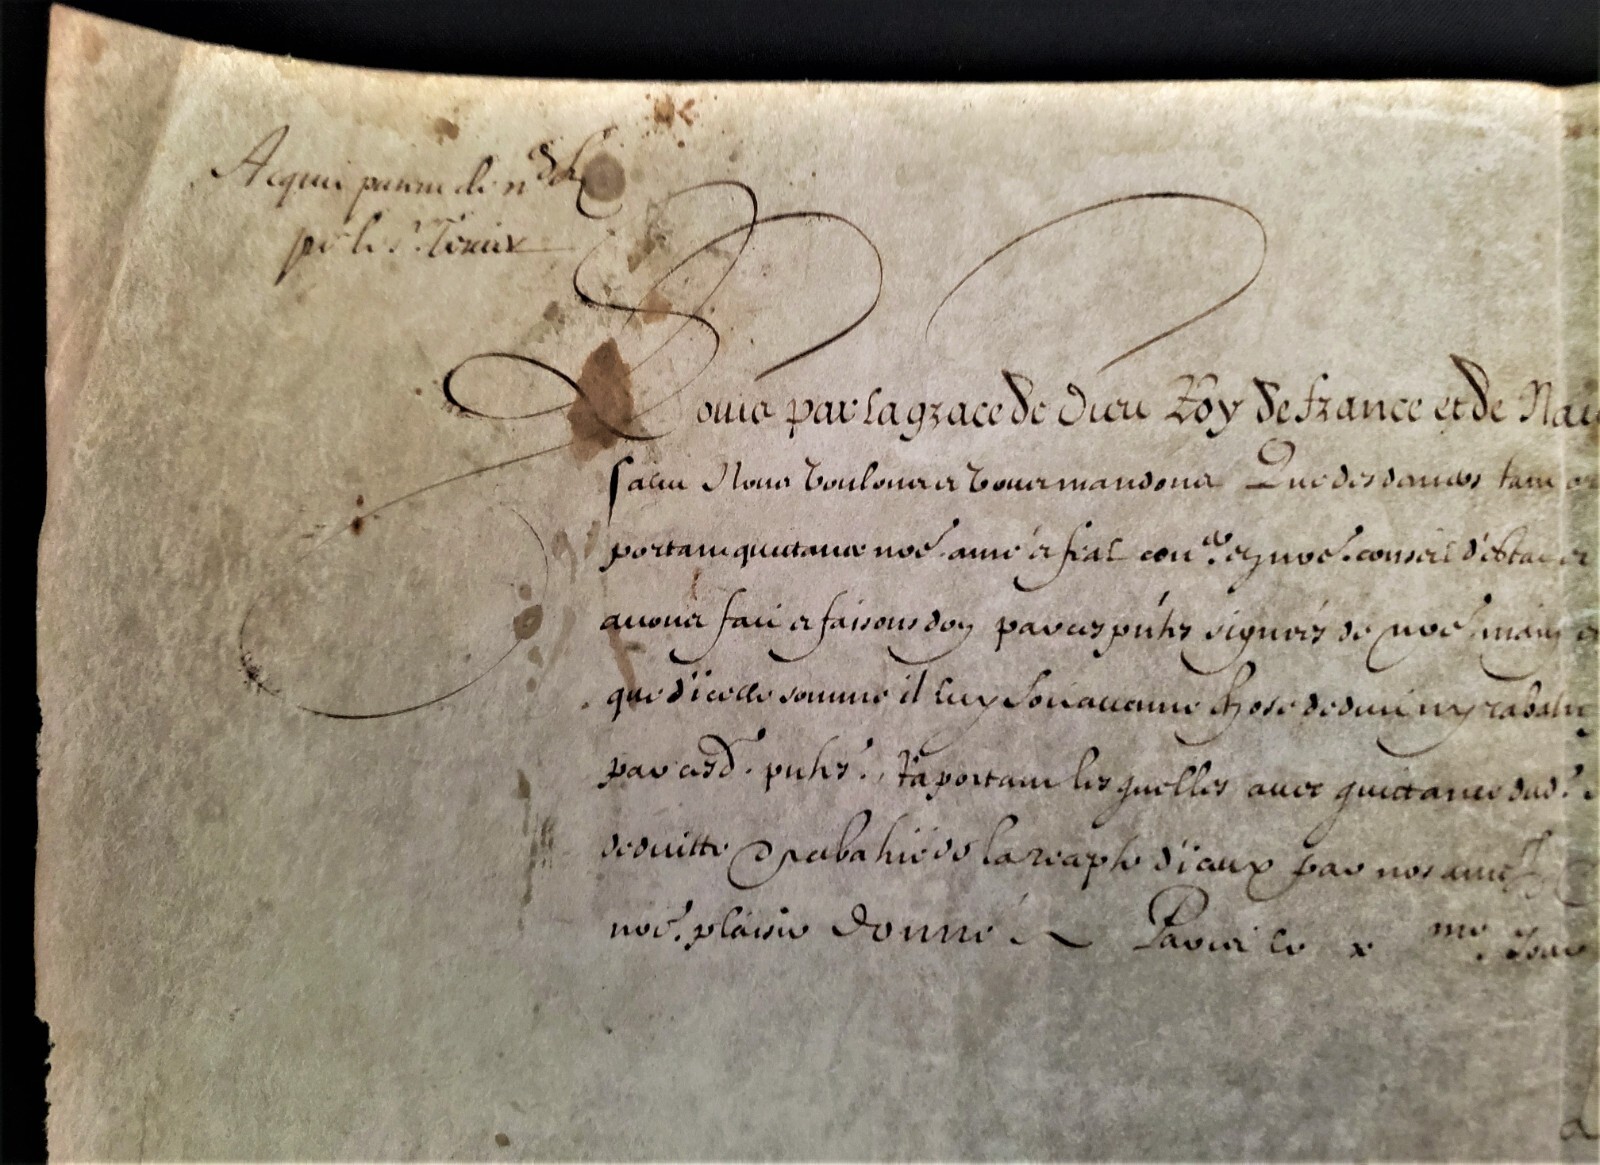 Acquit patent de n
po' le s.r
Louis par la grace de Dieu Roy de france et de Nau
salut Nous voulons et vous mandons Que des deniers tant or
portant quittance n're. amé et feal con.er en n're. conseil d'estat et
auons fait et faisons don par ces p'ntes signées de n're. main et
que d'icelle somme il luy soit aucune chose deduit ny rabatu
par cesd. p'ntes. Raportant lesquelles auec quittance dud.
deduitte et rabatüe de la recepte d'iceux par nos amez
n're. plaisir Donné A Paris le x me. Jour